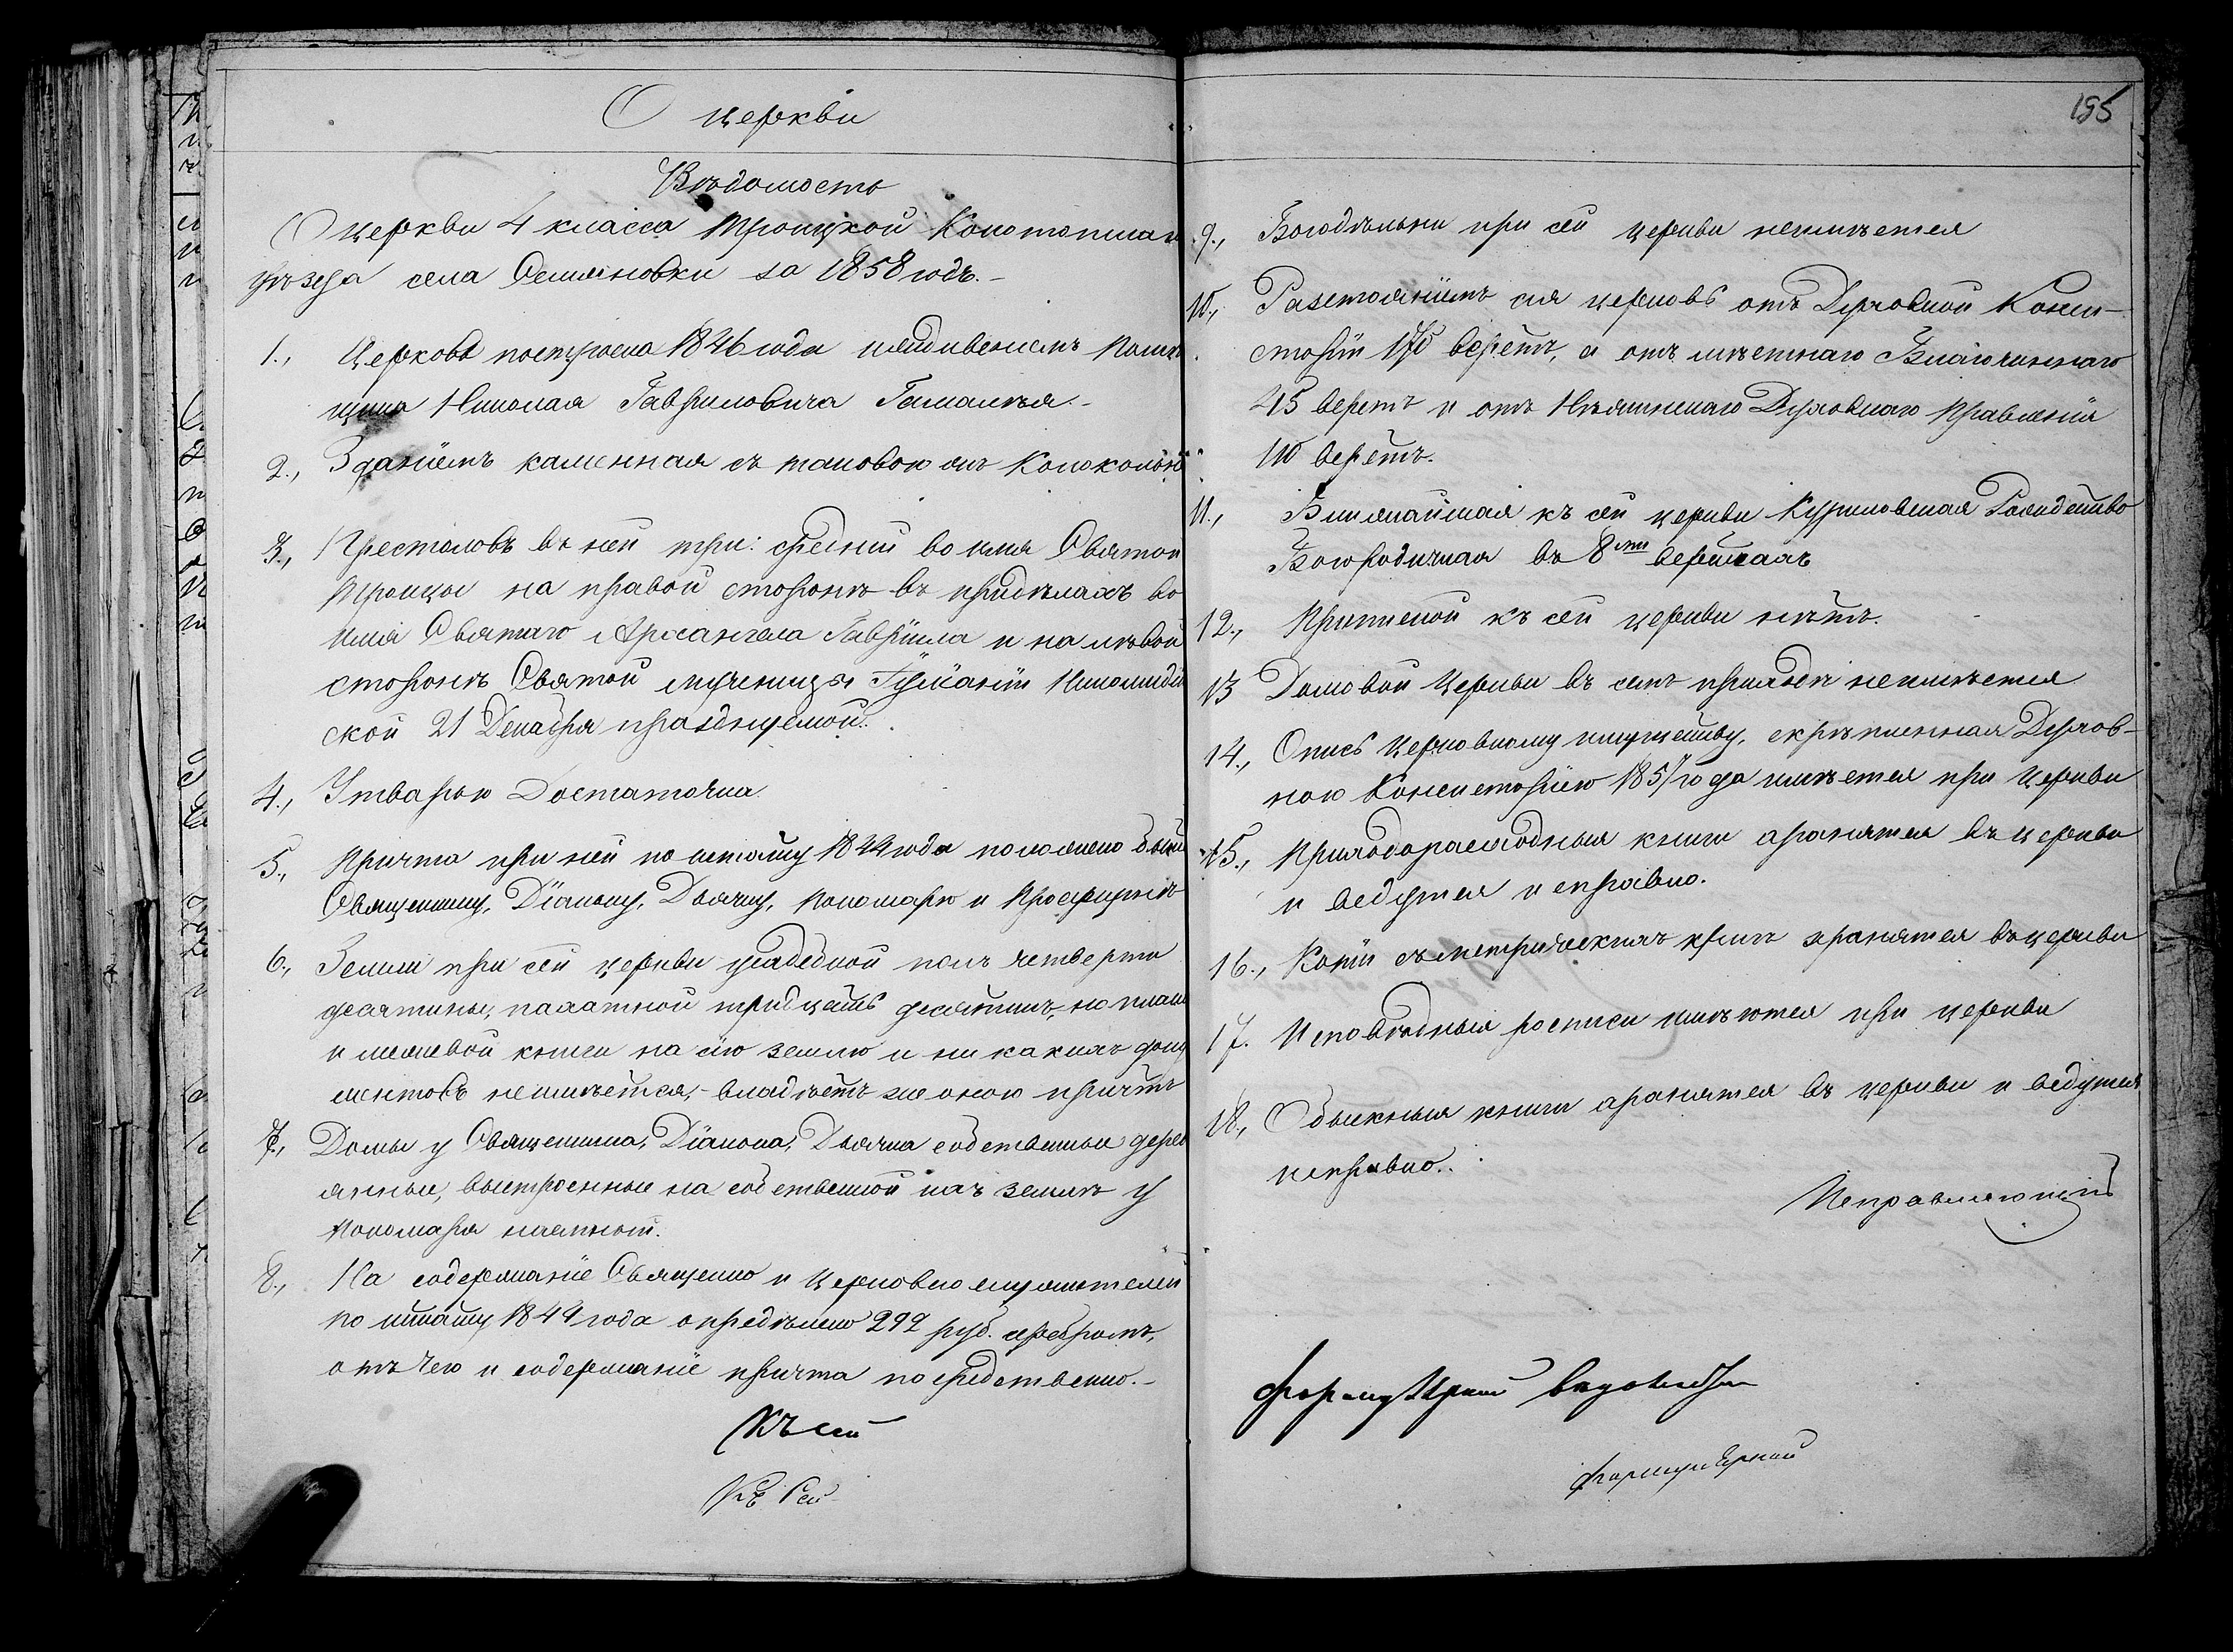 О церкви
Вѣдомость
О церкви 4 класса Троицкой Конотопскаго
уѣзда села Семяновки за 1858 годъ.-
1., Церковь построена 1846 года иждивеніемъ Помѣ
щика Николая Гавриловича Гамалѣя.-
2., Зданіемъ каменная съ таковою же Колокольнею
3., Престоловъ въ ней три: средній во имя Святой
Троицы на правой сторонѣ въ придѣлахъ во
имя Святаго Архангела Гавріила и на лѣвой
сторонѣ Святой мученицы Іуліаніи Никомидій
ской 21 Декабря празднуемой.
4., Утварью Достаточна
5., Причта при ней по штату 1844 года положено быть
Священнику, Діакону, Дьячку, Пономарю и Просфирнѣ
6., Земли при сей церкви усадебной полъ четверти
десятины, пахатной тридцать десятинъ, но плана
и межевой книги на сію землю и ни какихъ доку
ментовъ неимѣется,- владѣетъ же оною причтъ
7., Домы у Священника, Діакона, Дьячка собственные дерев
янные, выстроенные на собственной ихъ землѣ у
Пономаря наемной.
8., На содержаніе Священно и Церковно служителей
по штату 1844 года опредѣлено 292 руб. серебромъ,
отъ чего и содержаніе причта посредственно.-
Къ сей
Къ Сей
195
9., Богодѣльни при сей церкви неимѣется
10., Разстояніемъ сія церковь отъ Духовной Конси-
сторіи 170 верстъ, а отъ мѣстнаго Благочиннаго
45 верстъ и отъ Нѣжинскаго Духовнаго Правленія
110 верстъ.
11., Ближайшая къ сей церкви Куриловская Рождество
Богородичная въ 8ми верстахъ
12., Приписной къ сей церкви нѣтъ.
13 Домовой Церкви въ семъ приходѣ неимѣется
14., Опись Церковному имуществу, скрѣпленная Духов-
ною Консисторіею 1857 года имѣется при Церкви
15., Приходорасходныя книги хранятся въ церкви
и ведутся исправно.
16., Копіи съ метрическихъ книгъ хранятся въ церкви
17. Исповѣдныя росписи имѣются при церкви
18., Обыскныя книги хранятся въ церкви и ведутся
исправно.
Исправляющій
формулярной вѣдомости
формулярной